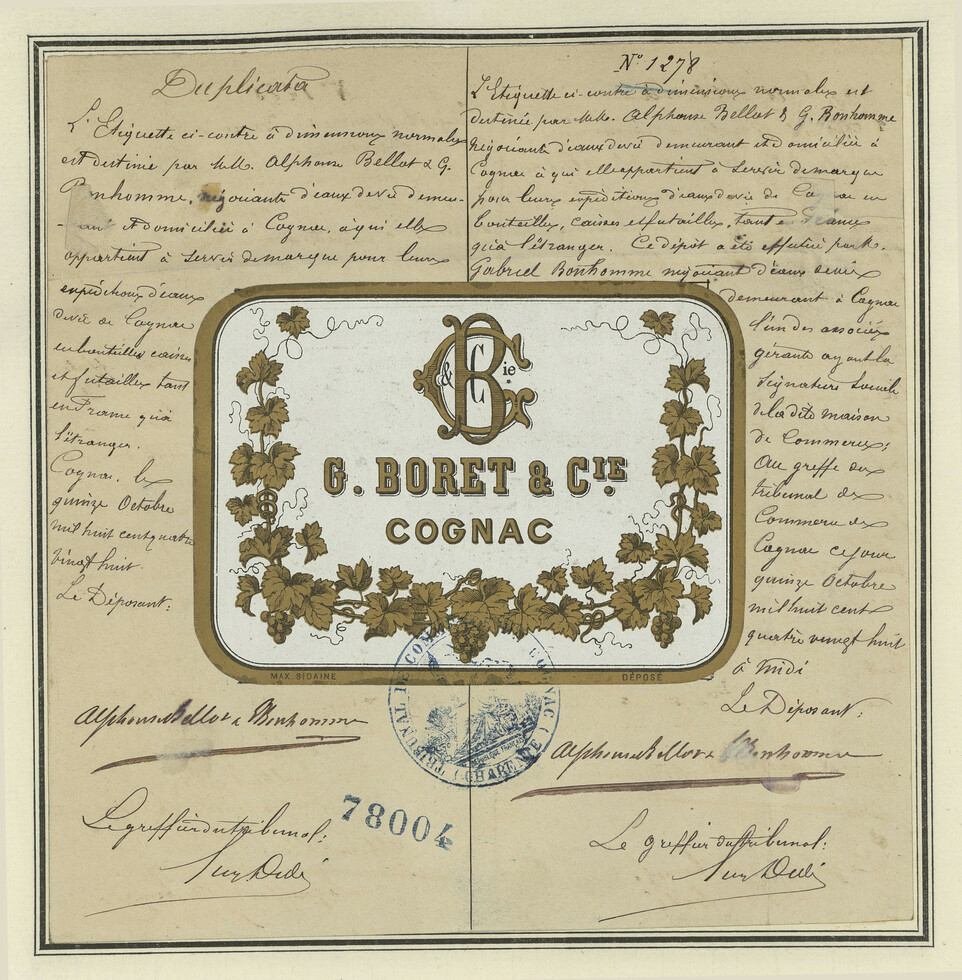 Duplicata
L'Etiquette ci-contre à dimensions normales
est destinée par M.M. Alphonse Bellot & G.
Bonhomme, négociants d'eaux de vie demeu-
-rant et domiciliés à Cognac, à qui elle
appartient à servir de marque pour leurs
expéditions d'eaux
de vie de Cognac
en bouteilles, caisses
et futailles tant
en France qu'à
l'étranger.
Cognac, le
quinze Octobre
mil huit cent quatre
vingt huit.
Le Déposant:
Alphonse Bellot & Bonhomme
Le greffier du tribunal:
N° 1278
L'Etiquette ci-contre à dimensions normales est
destinée par M.M. Alphonse Bellot & G. Bonhomme
négociants d'eaux de vie demeurant et domiciliés à
Cognac à qui elle appartient à servir de marque
pour leurs expéditions d'eaux de vie de Cognac en
bouteilles, caisses et futailles, tant en France
qu'à l'étranger. Ce dépôt a été effectué par M.
Gabriel Bonhomme négociant d'eaux de vie
demeurant à Cognac
l'un des associés
gérants ayant la
signature sociale
de la dite maison
de Commerce;
Au greffe du
tribunal de
Commerce de
Cognac ce jour
quinze Octobre
mil huit cent
quatre vingt huit
à midi
Le Déposant:
Alphonse Bellot & Bonhomme
Le greffier du tribunal:
G B C & Cie
G. BORET & CIE
COGNAC
MAX SIDAINE
DÉPOSÉ
TRIBUNAL DE COMMERCE COGNAC (CHARENTE)
78004